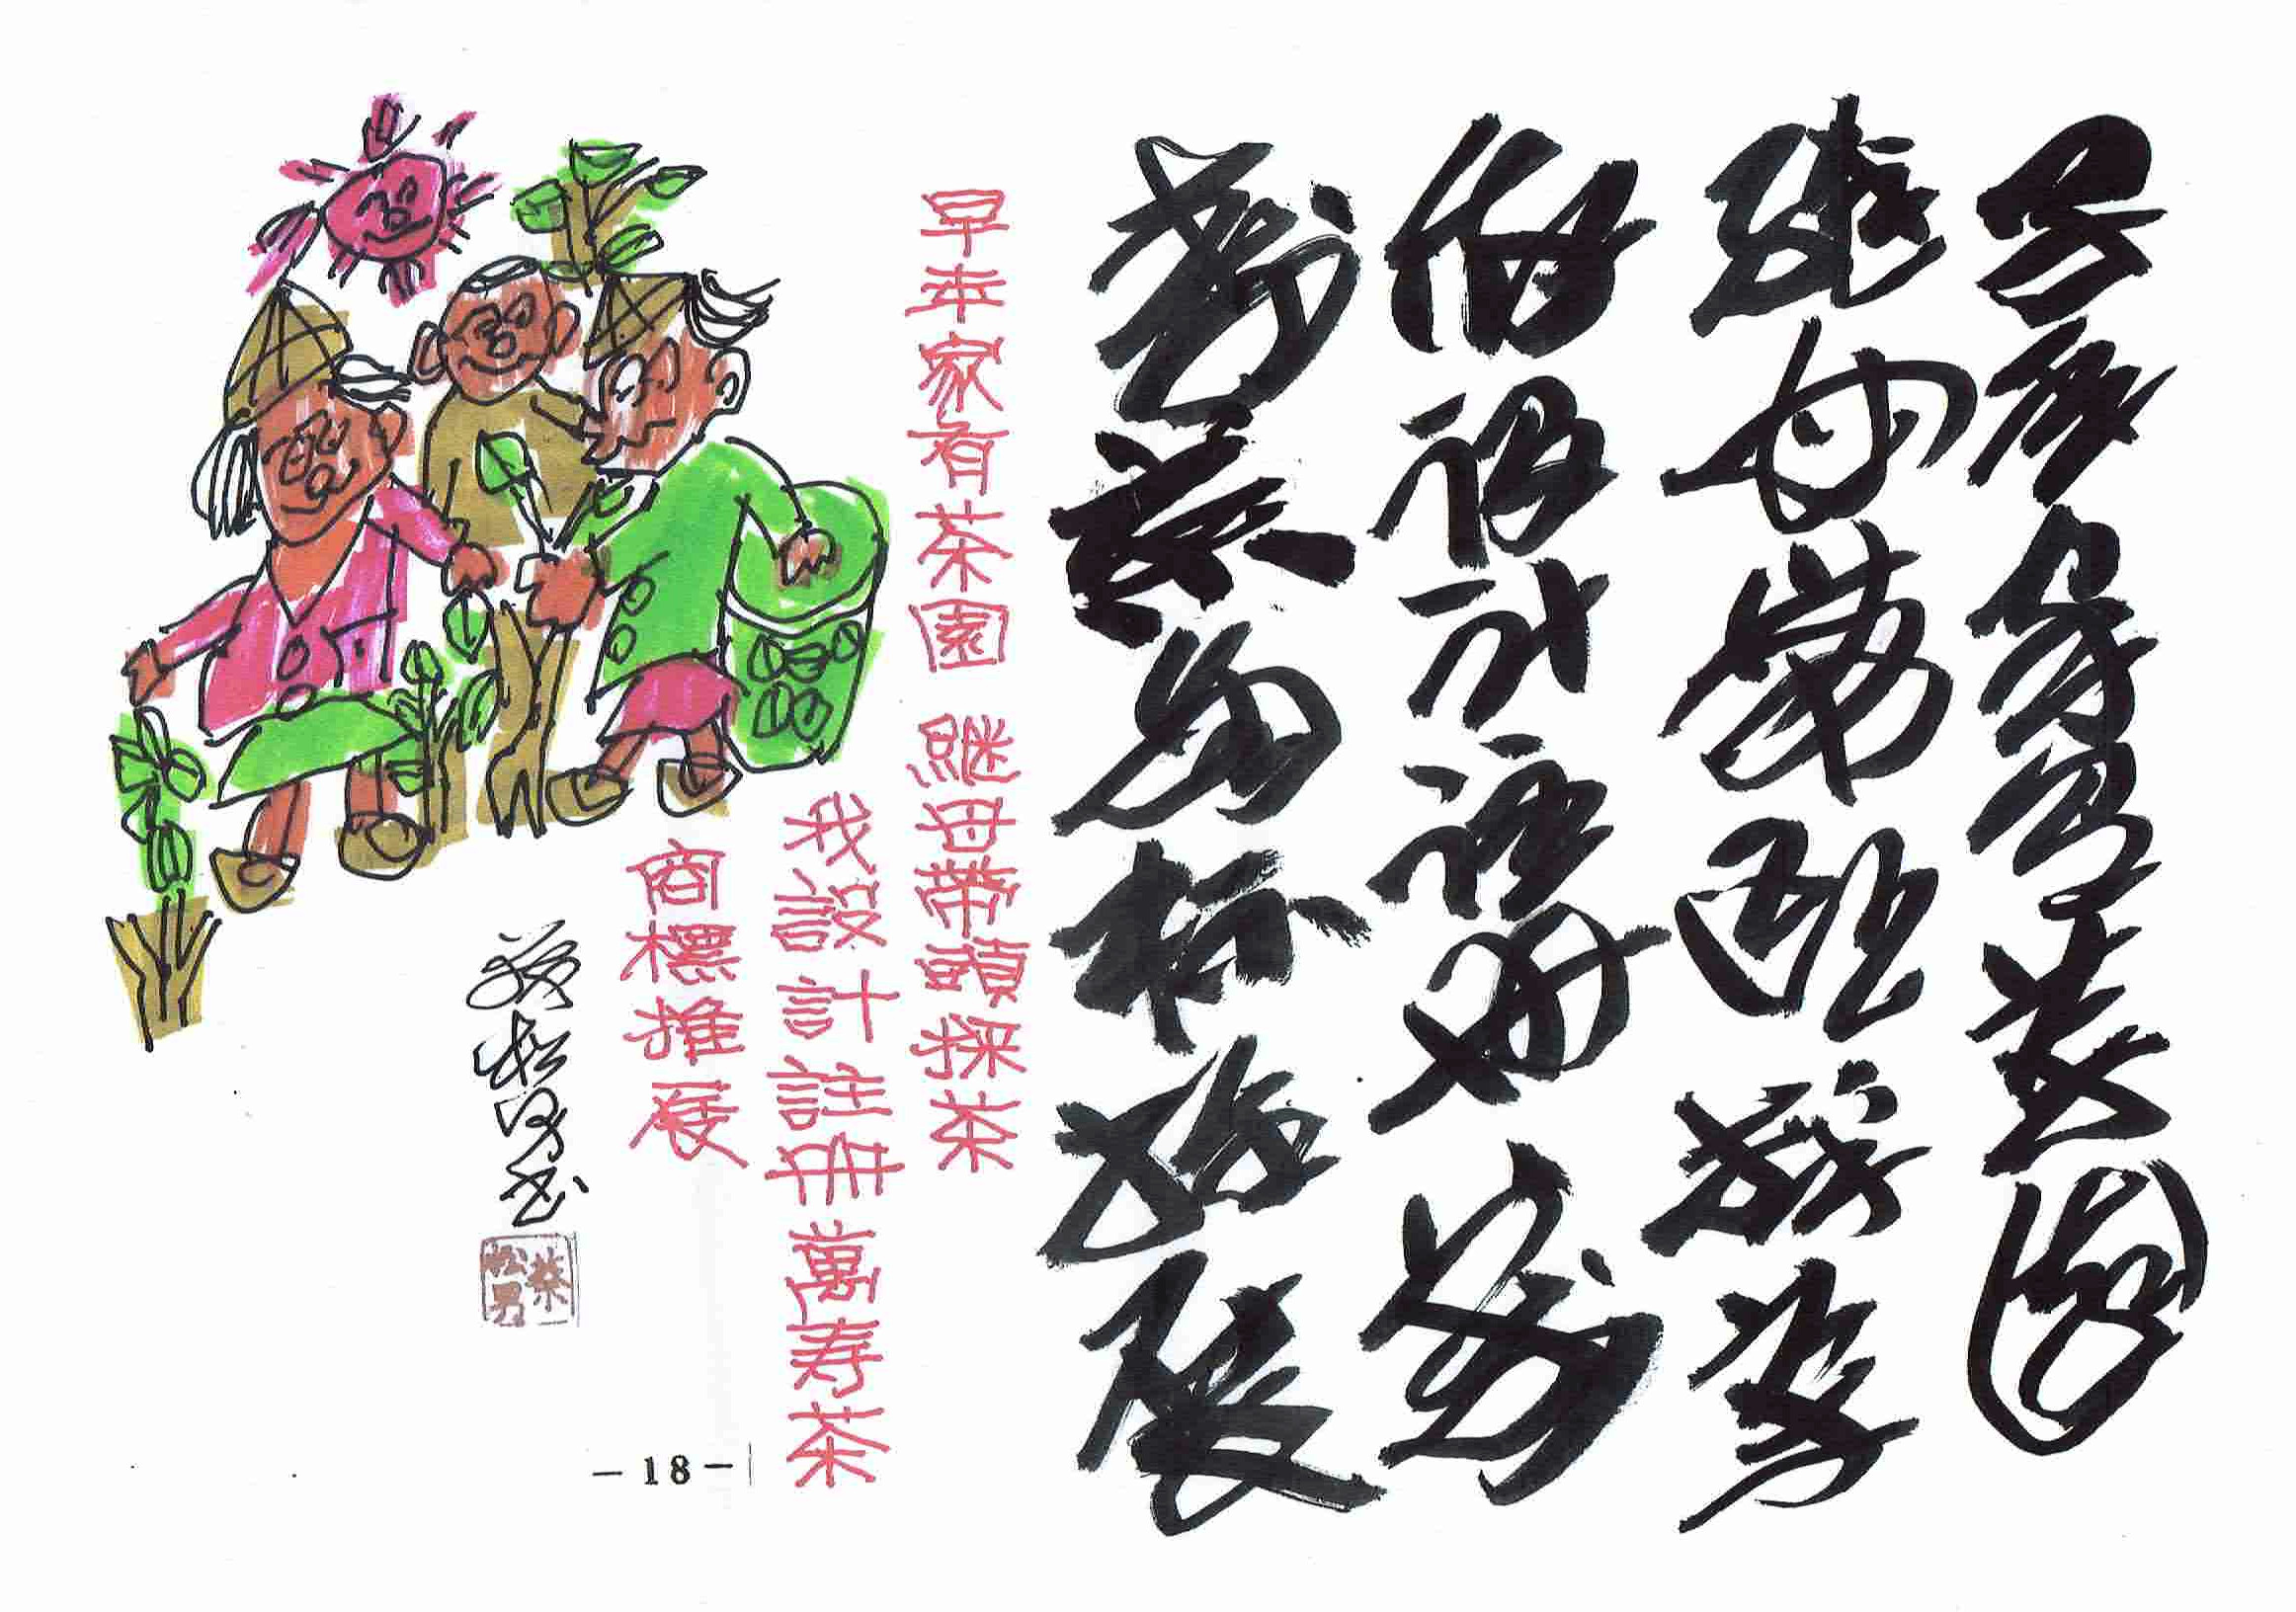 早年家有茶園
繼母帶頭採茶
我設計註冊萬
壽茶商標推展
早年家有茶園 継母帶頭採茶
我設計註冊萬寿茶
商標推展
蔡松男书
蔡松男
－18－